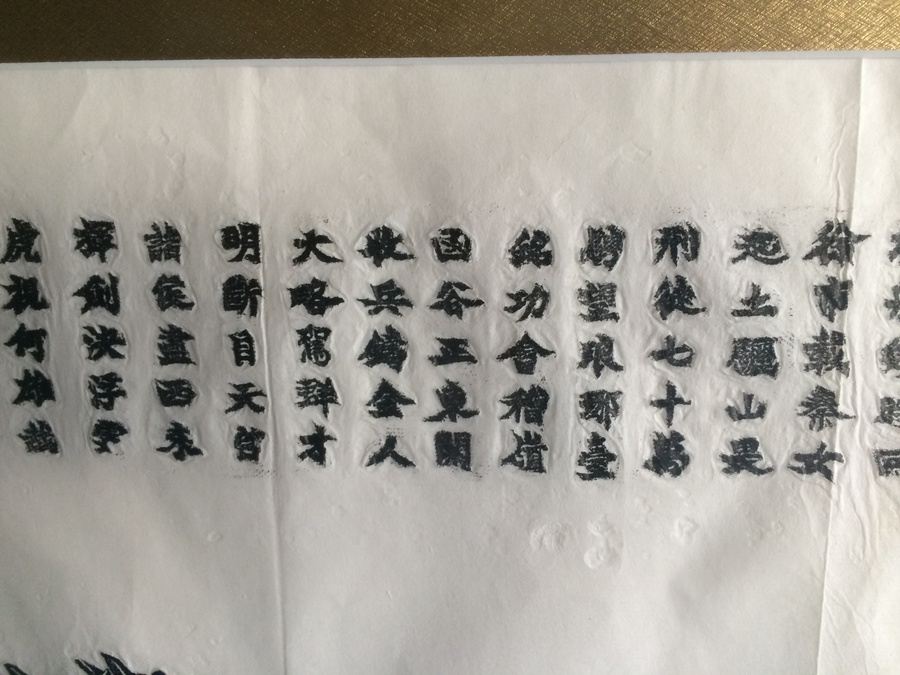 虎視何雄哉
揮劍決浮雲
諸侯盡西来
明斷自天啓
大略駕群才
收兵鑄金人
函谷正東開
銘功會稽嶺
騁望琅琊臺
刑徒七十萬
起土驪山隈
徐市載秦女